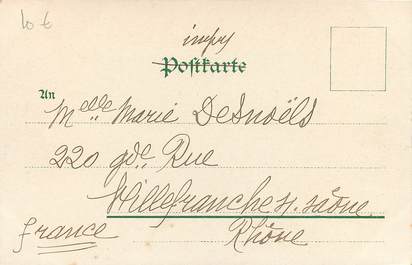 10 €
Postkarte
An
Melle Marie DeSnoëls
220 gde Rue
Villefranche s. saône
france Rhône